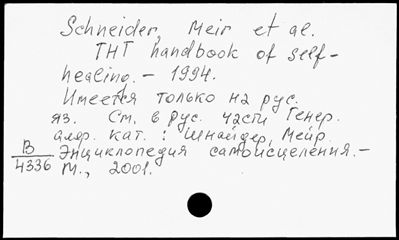 Schneider, Meir et al.
THT handbook of self-
healing. – 1994.
Имеется только на рус.
яз. См. в рус. части Генер.
алф. кат.: Шнайдер, Мейр.
B
4336
Энциклопедия самоисцеления. –
М., 2001.